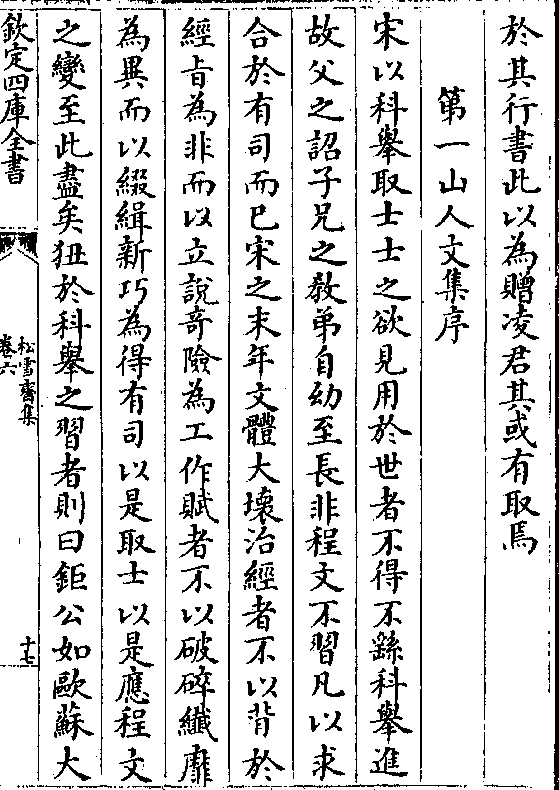 於其行書此以為贈凌君其或有取焉
第一山人文集序
宋以科舉取士士之欲見用於世者不得不繇科舉進
故父之詔子兄之教弟自幼至長非程文不習凡以求
合於有司而已宋之末年文體大壞治經者不以背於
經旨為非而以立說奇險為工作賦者不以破碎纖靡
為異而以綴緝新巧為得有司以是取士以是應程文
之變至此盡矣狃於科舉之習者則曰鉅公如歐蘇大
欽定四庫全書
松雪齋集
卷六
十七